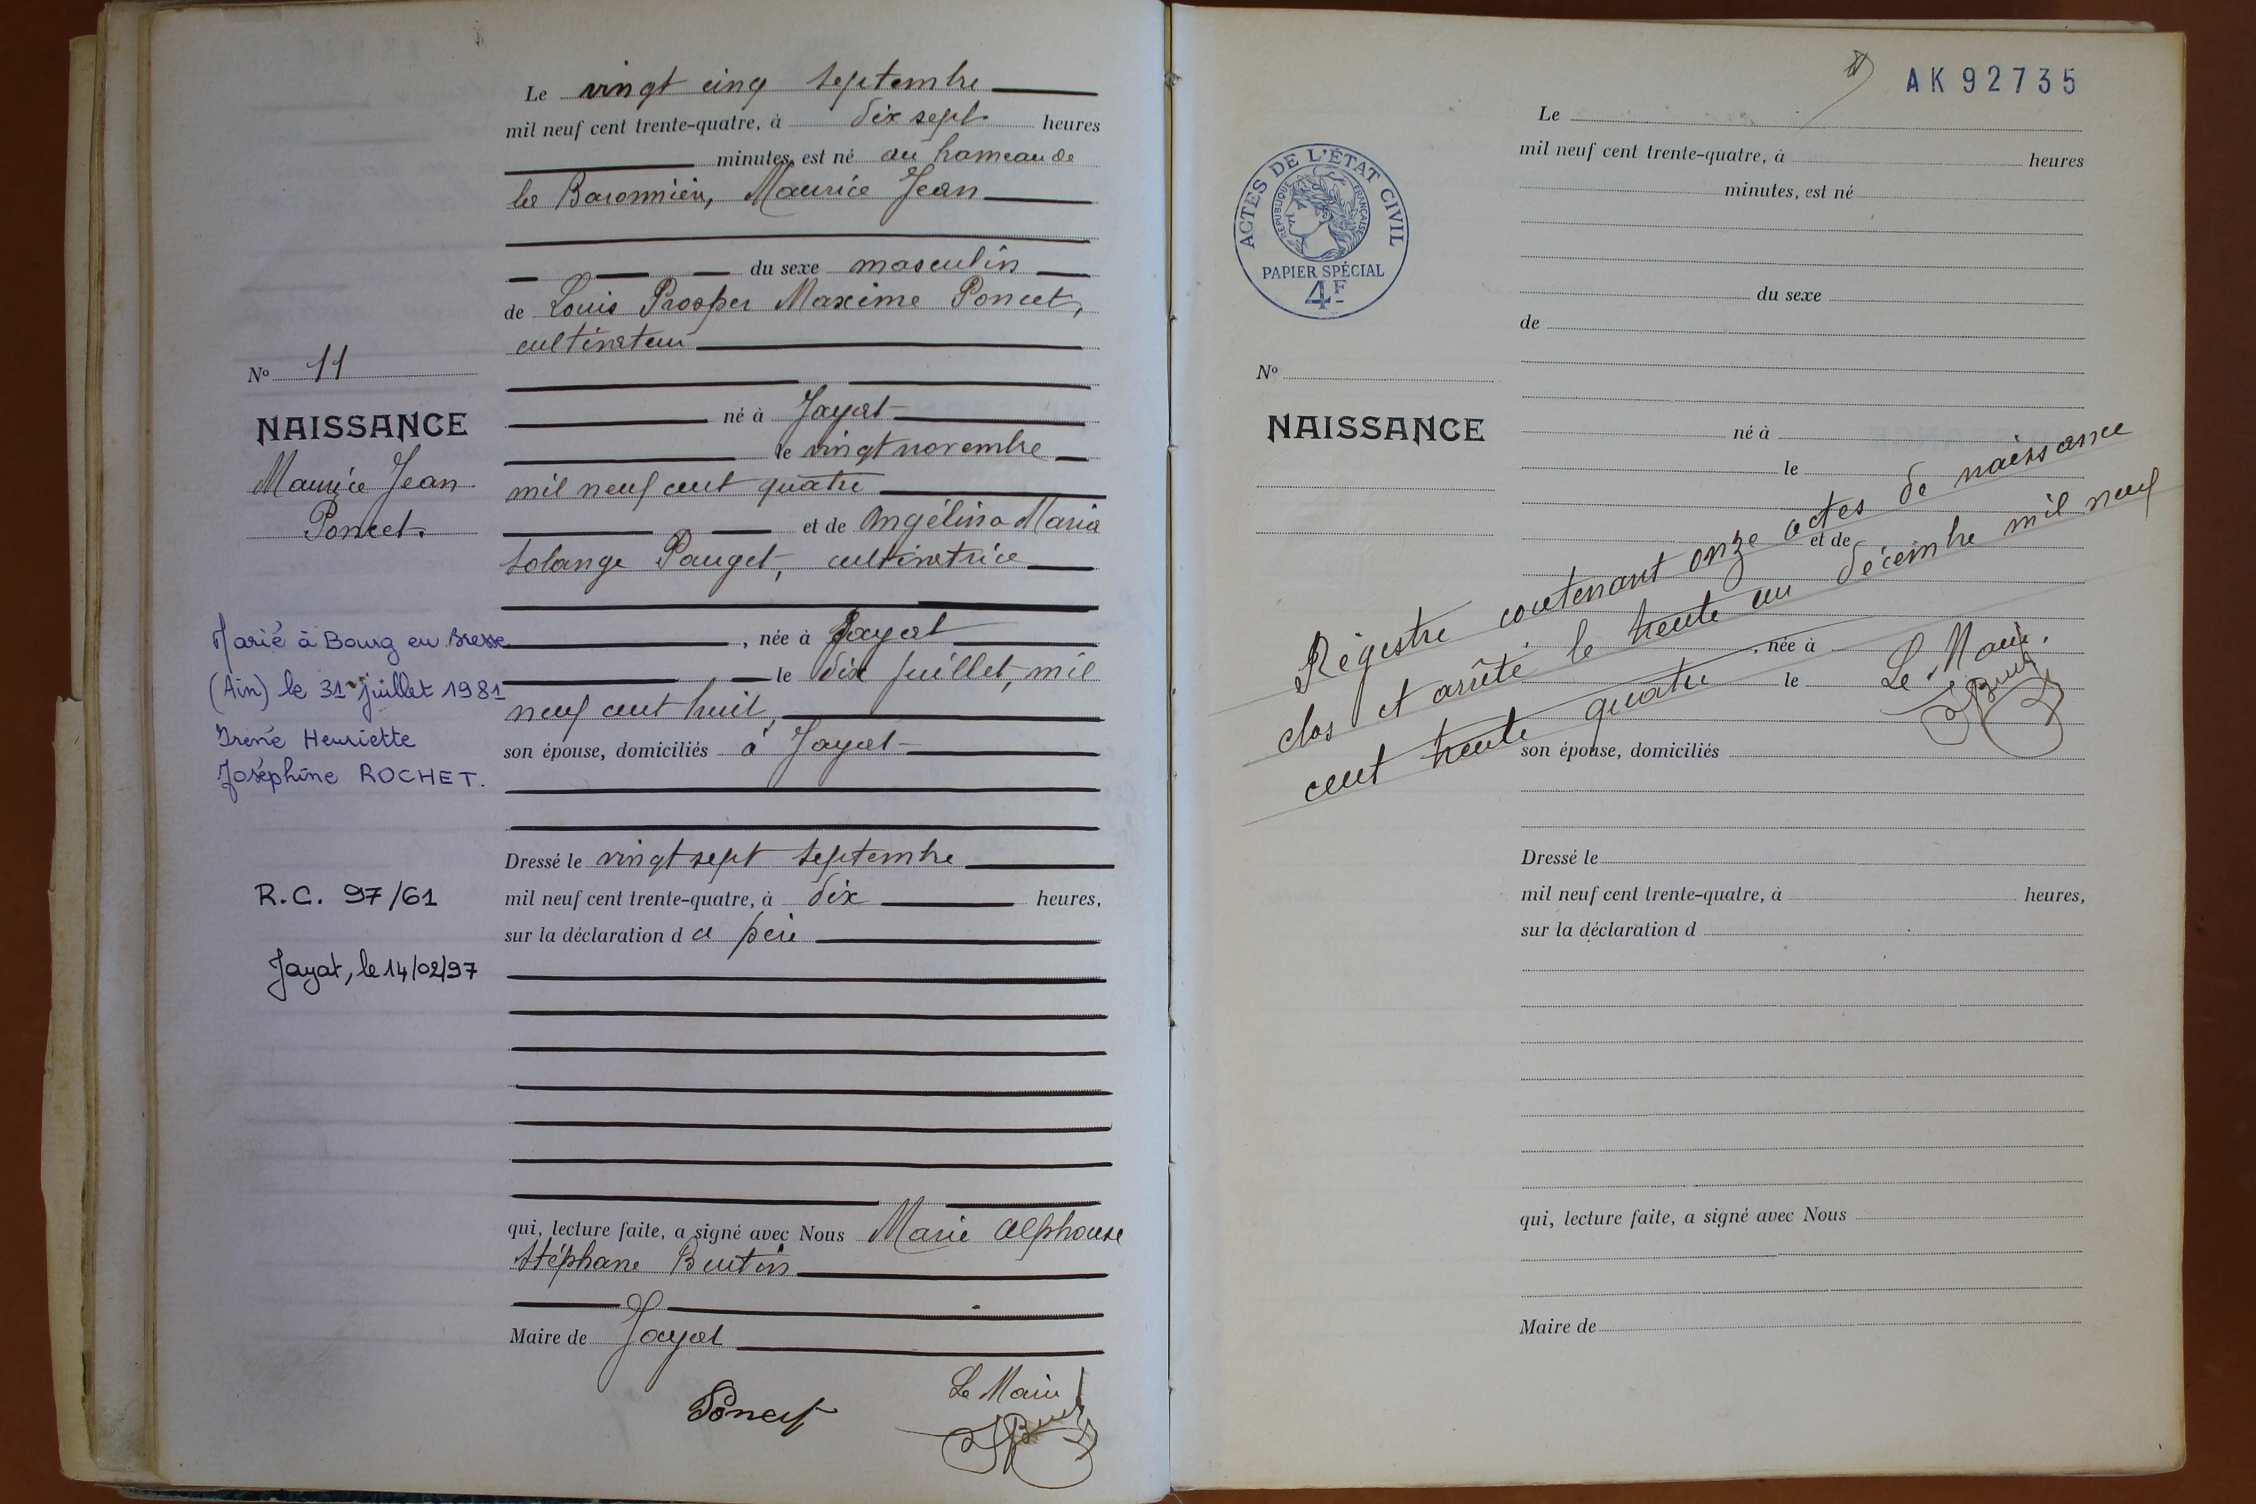 Le vingt cinq septembre
mil neuf cent trente-quatre, à dix sept heures
minutes, est né au hameau de
les Baronnières, Maurice Jean
du sexe masculin
de Louis Prosper Maxime Poncet,
cultivateur
né à Jayat
le vingt novembre
mil neuf cent quatre
et de Angélina Maria
Solange Pauget, cultivatrice
, née à Jayat
le dix juillet, mil
neuf cent huit,
son épouse, domiciliés à Jayat
Dressé le vingt sept septembre
mil neuf cent trente-quatre, à dix heures,
sur la déclaration du père
qui, lecture faite, a signé avec Nous Marie Alphonse
Stéphane Buttin
Maire de Jayat
Poncet
Le Maire
No 11
NAISSANCE
Maurice Jean
Poncet.
Marié à Bourg en Bresse
(Ain) le 31 juillet 1981
Irène Henriette
Joséphine ROCHET.
R.C. 97/61
Jayat, le 14/02/97
AK 92735
ACTES DE L'ÉTAT CIVIL
RÉPUBLIQUE FRANÇAISE
PAPIER SPÉCIAL
4F
Le
mil neuf cent trente-quatre, à heures
minutes, est né
du sexe
de
No
NAISSANCE
né à
le
et de
, née à
le
son épouse, domiciliés
Registre contenant onze actes de naissance
clos et arrêté le trente un décembre mil neuf
cent trente quatre
Le Maire.
Dressé le
mil neuf cent trente-quatre, à heures,
sur la déclaration d
qui, lecture faite, a signé avec Nous
Maire de